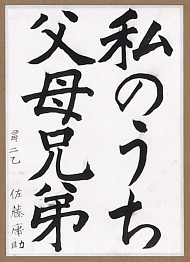 私のうち
父母兄弟
尋二乙 佐藤庸助